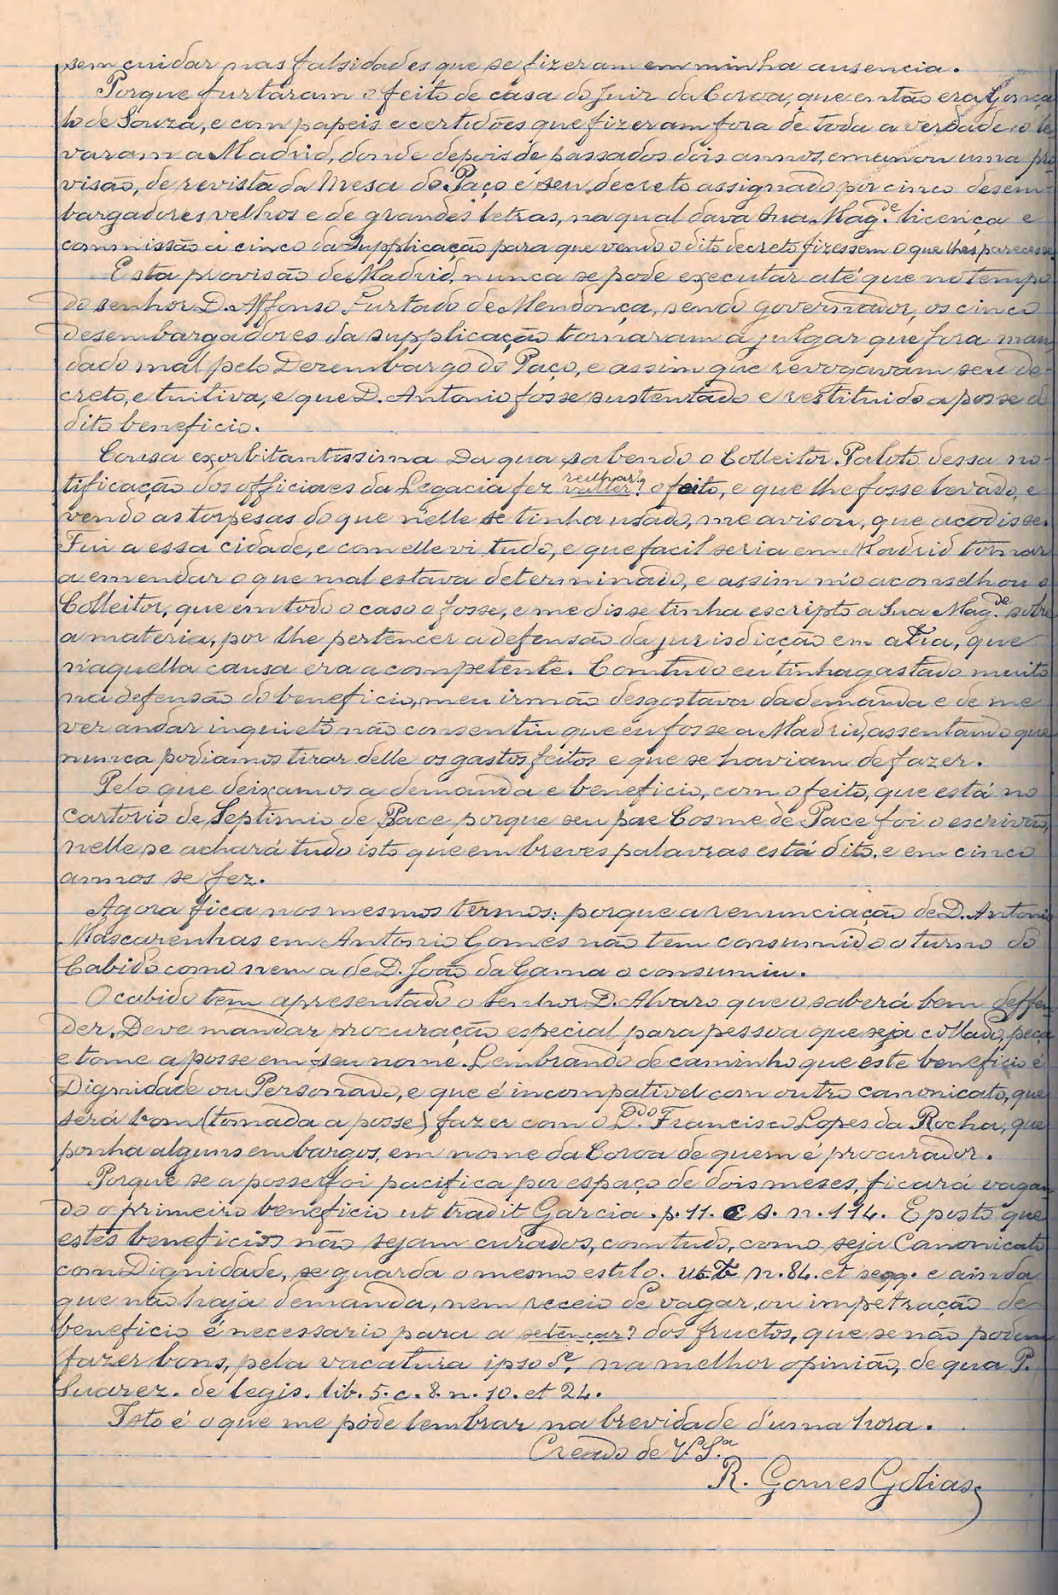 sem cuidar nas falsidades que se fizeram em minha ausencia.
Porque furtaram o feito de casa do Juiz da Coroa, que então era Gonça
lo de Souza, e com papeis e certidões que fizeram fora de toda a verdade o le
varam a Madrid, donde depois de passados dois annos, emanou uma pro
visão, de revista da Mesa do Paço e seu decreto assignado por cinco desem
bargadores velhos e de grandes letras, na qual dava Sua Mag.de licença e
commissão a cinco da Supplicação para que vendo o dito decreto fizessem o que lhes parecesse
Esta provisão de Madrid, nunca se pode executar até que no tempo
do senhor D. Affonso Furtado de Mendonça, sendo governador, os cinco
desembargadores da supplicação tornaram a julgar que fora man
dado mal pelo Dezembargo do Paço, e assim que revogavam seu de
creto, e tuitiva, e que D. Antonio fosse sustentado e restituido a posse do
dito beneficio.
Cousa exorbitantissima da qua sabendo o Colleitor Paloto dessa no
tificação dos officiaes da Legacia fez valler? o feito, e que lhe fosse levado, e
vendo as torpesas do que nelle se tinha usado, me avisou, que acodisse.
Fui a essa cidade, e com elle vi tudo, e que facil seria em Madrid tornar
a emendar o que mal estava determinado, e assim m'o aconselhou o
Colleitor, que em todo o caso o fosse, e me disse tinha escripto a Sua Mag.de sobre
a materia, por lhe pertencer a defensão da jurisdicção em a Tia, que
n'aquella causa era a competente. Comtudo eu tinha gastado muito
na defensão do beneficio, meu irmão desgostava da demanda e de me
ver andar inquieto não consentiu que eu fosse a Madrid, assentando que
nunca podiamos tirar delle os gastos feitos e que se haviam de fazer.
Pelo que deixamos a demanda e beneficio, com o feito, que está no
cartorio de Septimio de Pace porque seu pae Cosme de Pace foi o escrivão
nelle se achará tudo isto que em breves palavras está dito, e em cinco
annos se fez.
Agora fica nos mesmos termos: porque a renunciação de D. Antonio
Mascarenhas em Antonio Gomes não tem consumido o turno do
Cabido como nem a de D. João da Gama o consumiu.
O cabido tem apresentado o senhor D. Alvaro que o saberá bem deffen
der. Deve mandar procuração especial para pessoa que seja collado, peça
e tome a posse em seu nome. Lembrando de caminho que este beneficio é
Dignidade ou Personado, e que é incompativel com outro canonicato, que
será bom (tomada a posse) fazer com o D.do Francisco Lopes da Rocha, que
ponha alguns embargos, em nome da Coroa de quem é procurador.
Porque se a posse foi pacifica por espaço de dois meses, ficará vagan
do o primeiro beneficio ut tradit Garcia. p. 11. c 5. n. 114. E posto que
estes beneficios não sejam curados, comtudo, como seja Canonicato
com Dignidade, se guarda o mesmo estilo. n. 84. et seqq. e ainda
que não haja demanda, nem receio de vagar, ou impetração de
beneficio é necessario para a setençar? dos fructos, que se não podem
fazer bons, pela vacatura ipso na melhor opinião, de qua P.
Suarez. de legis. lib. 5. c. 8. n. 10. et 24.
Isto é o que me póde lembrar na brevidade d'uma hora.
Creado de V. S.a
R. Gomes Golias